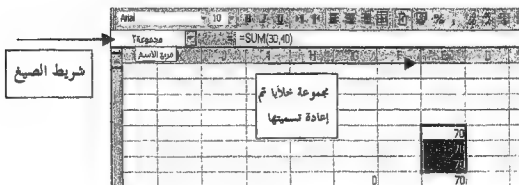 Arial 10
مجموعة٢ =SUM(30,40)
مربع الاسم
شريط الصيغ
مجموعة خلايا تم
إعادة تسميتها
70
70
70
0 70